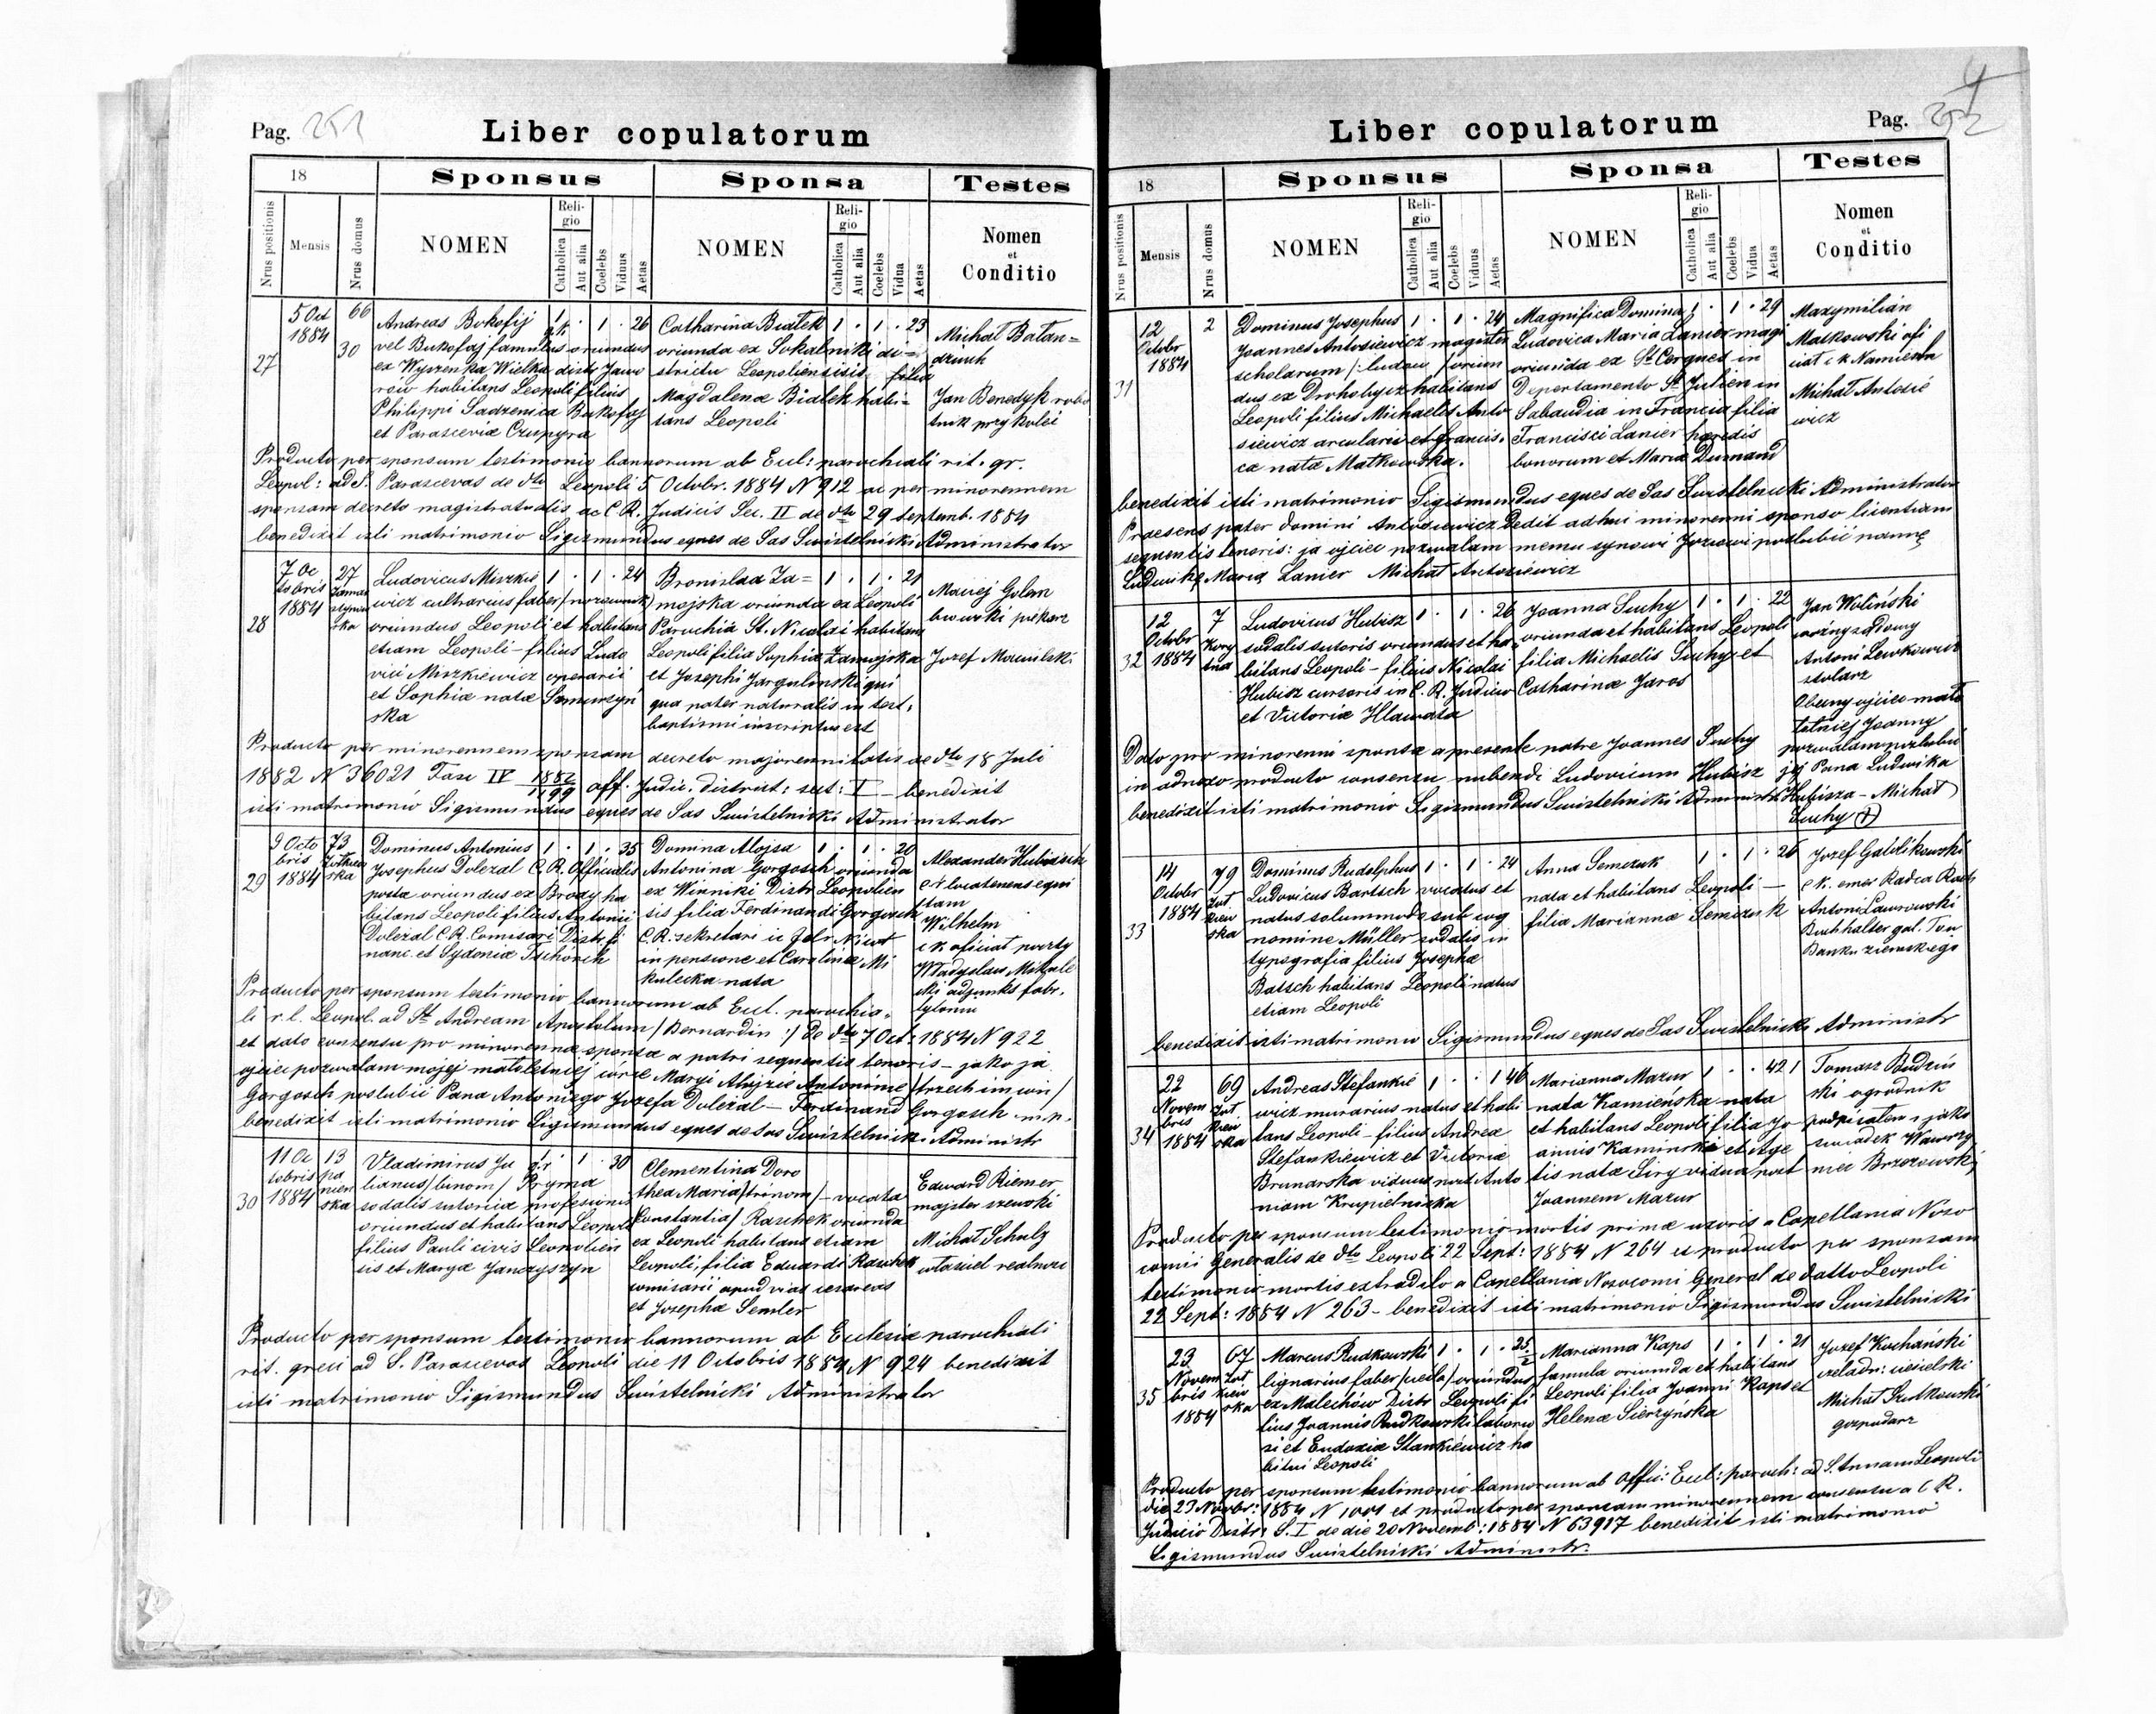 Pag. 251
Liber copulatorum
18
Sponsus
Sponsa
Testes
Nrus positionis
Mensis
Nrus domus
NOMEN
Religio
Catholica
Aut alia
Coelebs
Viduus
Aetas
NOMEN
Religio
Catholica
Aut alia
Coelebs
Vidua
Aetas
Nomen
et
Conditio
27
5 Oct
1884
66
30
Andreas Bokofij
vel Bukofaj famulus oriundus
ex Wyszenka Wielka distr Jawo
rów habitans Leopoli filius
Philippi Sadzenica Bukofaj
et Parasceviæ Czupyra
1 g.k. · 1 · 26
Catharina Białek
oriunda ex Sokalniki di=
strictu Leopoliensisis filia
Magdalena Białek habi=
tans Leopoli
1 · 1 · 23
Michał Bałan=
dziuch
Jan Benedyk robo
tnik przy kolei
Producto per sponsum testimonio bannorum ab Eul: parochiali rit. gr.
Leopol: ad S. Parascevas de dto Leopoli 5 Octobr. 1884 N 912 ac per minorennem
sponsam decreto magistratualis ac C. R. Judicis Sec. II de dto 29 septemb. 1884
benedixit isti matrimonio Sigismundus eques de Sas Swistelnicki Administrator
28
7 Oc
tobris
1884
27
Ludovicus Miszkie
wicz cultrarius faber / nozownik /
oriundus Leopoli et habitans
etiam Leopoli - filius Ludo
vici Miszkiewicz operarii
et Sophiæ natæ Szmurzyń
ska
1 · 1 · 24
Bronislad Za=
mojska oriunda ex Leopoli
Parochia St. Nicolai habitans
Leopoli filia Sophiæ Zamojska
et Josephi Jargulinski qui
qua pater naturalis in test.
baptismi inscriptus est
1 · 1 · 21
Maciej Golem
bowski piekarz
Jozef Mowilski
Producto per minorennem sponsam decreto majorennitatis de dto 18 Juli
1882 N 36021 Fasc IV 1882/1199 off. Judic. district: sect: I - benedixit
isti matrimonio Sigismundus eques de Sas Swistelnicki Administrator
29
9 Octo
bris
1884
73
Zołkiew
ska
Dominus Antonius
Josephus Dolezal C. R. Officialis
posta oriundus ex Brody ha
bitans Leopoli filius Antonii
Dolezal C. R. Comisari Distr. fi
nanc. et Sydoniæ Tschörch
1 · 1 · 35
Domina Alojsa
Antonina Gorgosch oriunda
ex Winniki Distr Leopolien
sis filia Ferdinandi Gorgosch
C. R. sekretari ic
in pensione et Carolinæ Mi
kulecka nata
1 · 1 · 20
Alexander
c k locatenens equi
stam
Wilhelm
c k oficiał poczty
Władyslaw Mikule
cki adjunkt fabr.
tytoniu
Producto per sponsum testimonio bannorum ab Eul. parochia,
li r. l. Leopol. ad St Andream Apostolum / Bernardin :/ De dto 7 Oct: 1884 N 922
et dato consensu pro minorenna sponsæ a patri sequentis tenoris - jako ja
ojciec pozwalam mojej małoletniej córce Maryi Alojzie Antoninie / trzech imion /
Gorgosch poslubić Pana Antoniego Jozefa Doleżal - Ferdinand Gorgosch m. p.
benedixit isti matrimonio Sigismundus eques de Sas Swistelnick. Administr
30
11 Oc
tobris
1884
13
pa
nien
ska
Vladimirus Ju
lianus / binom / Pryma
sodalis sutoriæ profesionis
oriundus et habitans Leopoli
filius Pauli civis Leopolien
sis et Maryæ Janczyszyn
1 · 30
Clementina Doro
thea Maria / trinom / - vocata
Constantia / Raschek oriunda
ex Leopoli habitans etiam
Leopoli, filia Eduardi Raschek
comisarii apud vias cesareas
et Josephæ Semler
Edward Riemer
majster szewski
Michał Schulz
właściel realności
Producto per sponsum testimonio bannorum ab Eclesiæ parochiali
rit. greci ad S. Parascevas Leopoli die 11 Octobris 1884 N 924 benedixit
isti matrimonio Sigismundus Swistelnicki Administrator
Liber copulatorum
Pag. 252
18
Sponsus
Sponsa
Testes
Nrus positionis
Mensis
Nrus domus
NOMEN
Religio
Catholica
Aut alia
Coelebs
Viduus
Aetas
NOMEN
Religio
Catholica
Aut alia
Coelebs
Vidua
Aetas
Nomen
et
Conditio
31
12
Octobr
1884
2
Dominus Josephus
Joannes Antosiewicz magister
scholarum /: ludow / oriun
dus ex Drohobycz habitans
Leopoli filius Michaelis Anto
siewicz arcularii et Francis.
ca nata Matkowska.
1 · 1 · 24
Magnifica Domina
Ludovica Maria Lanier magi
oriunda ex St Cergues in
Departamento St Julien in
Sabaudia in Francia filia
Francisci Lanier hæredis
bonorum et Mariæ Dumand
1 · 1 · 29
Maxymilian
Matkowski ofi
ciał c k Namiestn
Michał Antosie
wicz
benedixit isti matrimonio Sigismundus eques de Sas Swistelnicki Administrator
Præsens pater domini Antosiewicz Dedit adhuc minorenni sponso licentiam
sequentis tenoris: ja ojciec pozwalam memu synowi Jozewi poslubić pannę
Ludwikę Marią Lanier Michał Antosiewicz
32
12
Octobr
1884
7
Kory
tna
Ludovicus Hubisz
sodalis sutoris oriundus et ha.
bitans Leopoli - filius Nicolai
Hubisz cursoris in C. R. Judicio
et Victoriæ Hlawata
1 · 1 · 26
Joanna Suchy
oriunda et habitans Leopoli
filia Michaelis Suchy et
Catharinæ Jaros
1 · 1 · 22
Jan Woliński
woźny sądowy
Antoni Lewkowicz
stolarz
Obecny ojciec mało
letniej Joanny
pozwalam poslubić
jej Pana Ludwika
Hubisza - Michał
Suchy (+)
Dato pro minorenni sponsæ a presente patre Joannes Suchy
in adnexo producto consensu nubendi Ludovicum Hubisz
benedixit isti matrimonio Sigismundus Swistelnicki Administr
33
14
Octobr
1884
79
Żoł
kiew
ska
Dominus Rudolphus
Ludovicus Bartsch vocatus et
natus solummodo sub cog
nomine Müller sodalis in
typografia filius Josephæ
Batsch habitans Leopoli natus
etiam Leopoli
1 · 1 · 24
Anna Semczuk
nata et habitans Leopoli -
filia Mariannæ Semczuk
1 · 1 · 26
Jozef Gablikowski
c k. emer Radca Rach
Antoni Lawrowski
Buchhalter gal. Tow
Banku ziemskego
benedixit isti matrimonio Sigismundus eques de Sas Swistelnicki Administr
34
22
Novem
bris
1884
69
Żoł
kiew
ska
Andreas Stefankie
wicz murarius natus et habi
tans Leopoli - filius Andreæ
Stefankiewicz et Victoriæ
Brunarska viduus post Anto
niam Krupielnicka
1 · · 1 46
Marianna Mazur
nata Kamieńska nata
et habitans Leopoli filia Jo
annis Kaminski et Aga
tis natæ Siry vidua post
Joannem Mazur
1 · · 42 1
Tomasz Budziń
ski ogrodnik
podpisałem i jako
swiadek Wawrzy
niec Brzozowski
Producto per sponsum testimonio mortis primæ uxoris a Capellania Noso
comii Generalis de dto Leopoli 22 Sept: 1884 N 264 et producto per sponsam
testimonio mortis extradito a Capellania Nosocomi General de datto Leopoli
22 Sept: 1884 N 263 - benedixit isti matrimonio Sigismundus Swistelnicki
35
23
Novem
bris
1884
67
Żoł
kiew
ska
Marcus Rudkowski
lignarius faber / cieśla / oriundus
ex Malechów Distr Leopoli fi
lius Joannis Rudkowski laborio
si et Eudoxiæ Stankiewicz ha
bitui Leopoli
1 · 1 · 35
Marianna Kaps
famula oriunda et habitans
Leopoli filia Joanni Kaps et
Helenæ Sierzyńska
1 · 1 · 21
Jozef Kochański
czeladn: ciesielski
Michał Szutkowski
gospodarz
Producto per sponsum testimonio bannorum ab offic: Eul: paroch: ad S. Annam Leopoli
die 23 Novbr: 1884 N 1001 et producto per sponsam minorennem consensu a C R.
Judicio Distr: S. I de die 20 Novemb: 1884 N 63917 benedixit isti matrimonio
Sigismundus Swistelnicki Administr.